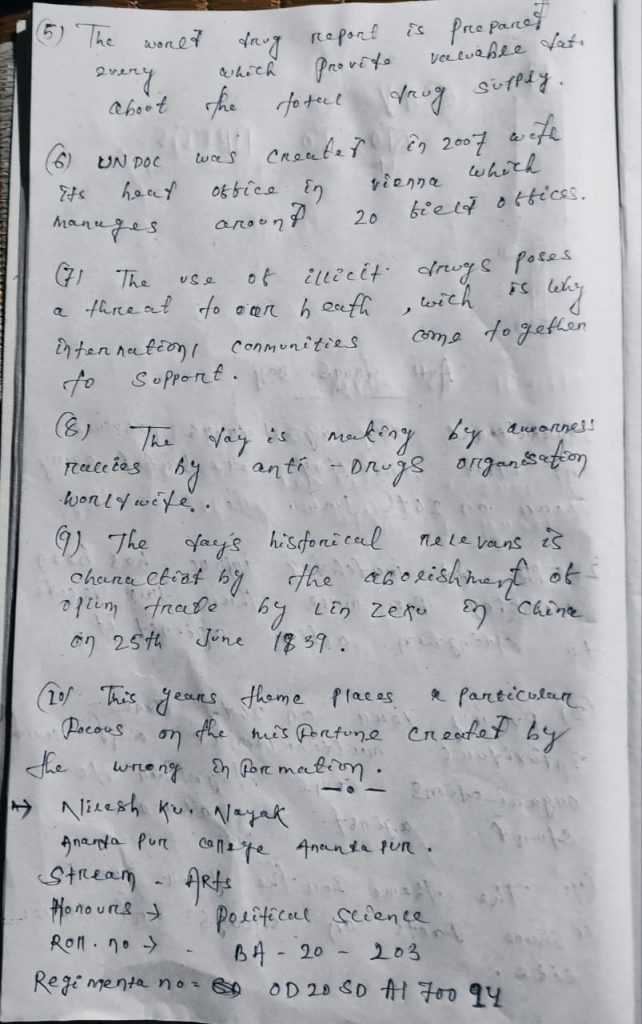 (5) The world drug report is prepared
every which provide valuable data
about the total drug supply.
(6) UNDOC was created in 2007 with
its head office in vienna which
manages around 20 field offices.
(7) The use of illicit drugs poses
a threat to our heath, wich is why
internationl communities come together
to support.
(8) The day is making by awarness
rallies by anti - Drugs organisation
worldwide.
(9) The day's historical relevans is
by the abolishment of
opium trade by Lin Zexu in China
on 25th June 1839.
(10) This years theme places a particular
focous on the misfortune created by
the wrong information.
—o—
→ Nilesh Ku. Nayak
Ananda Pur college Ananda Pur.
Stream - ARts
Honours → political science
Roll. no → - BA - 20 - 203
Regimenta no = OD 20 SD AI 700 94